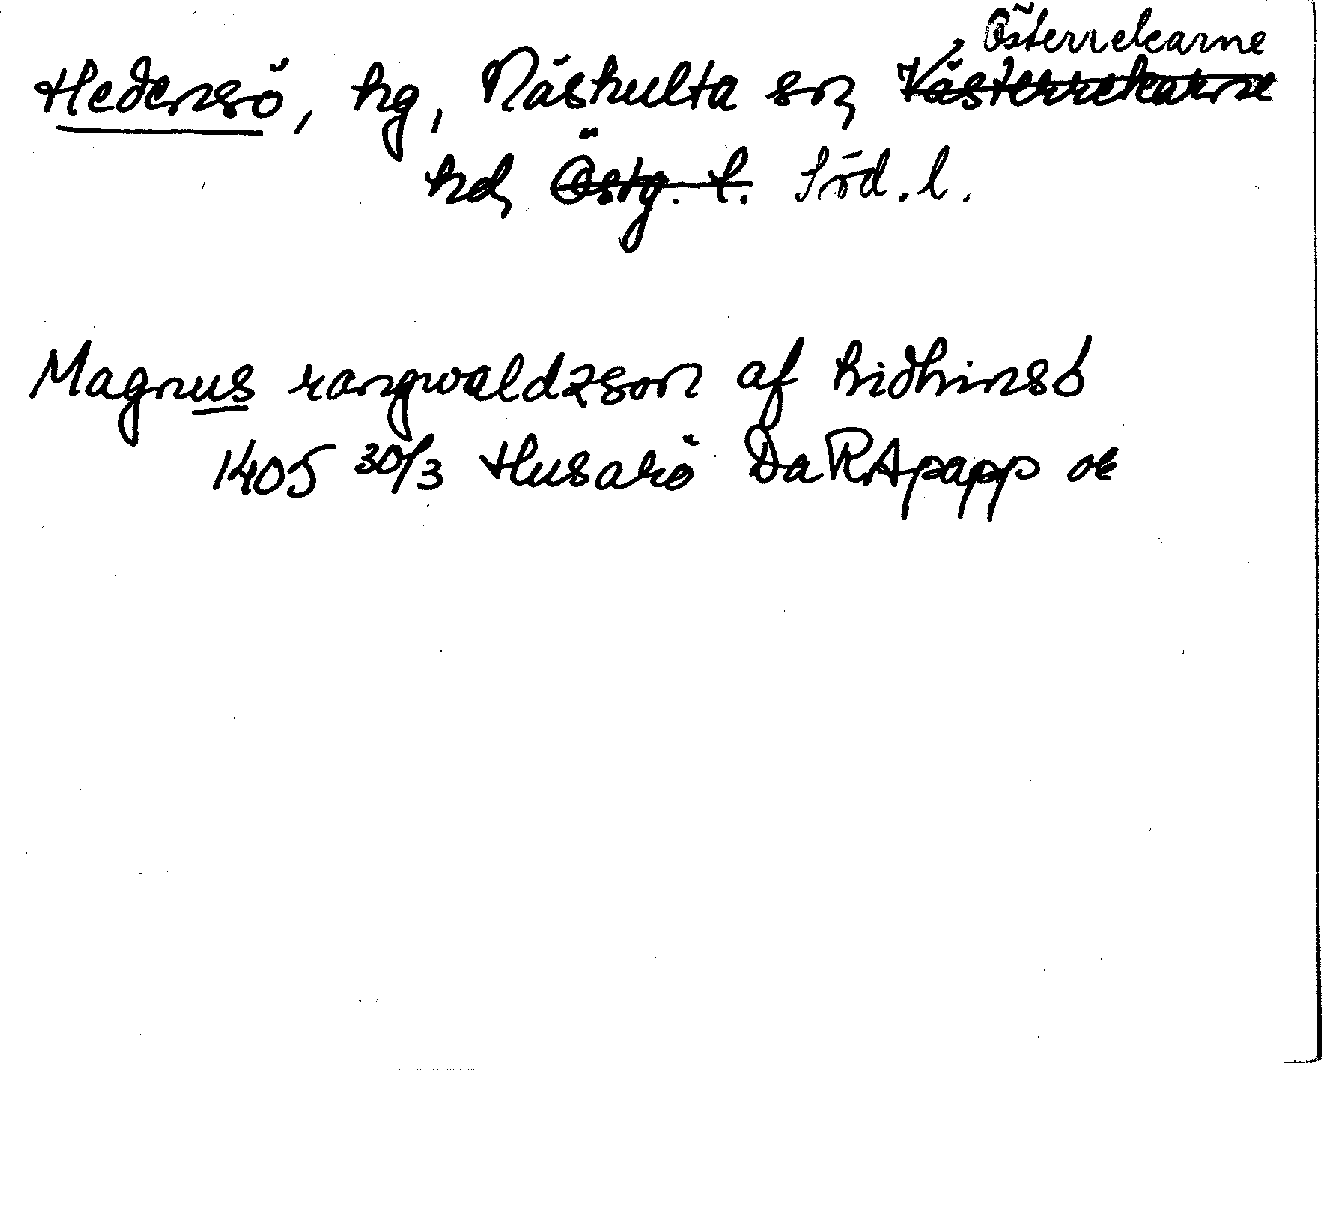 Österrekarne
Hedensö, hg, Näshulta sn, Västerrekarne
hd, Östg. l. Söd. l.
Magnus rangwaldzson af hidhinsö
1405 30/3 Husarö DaRApapp ok